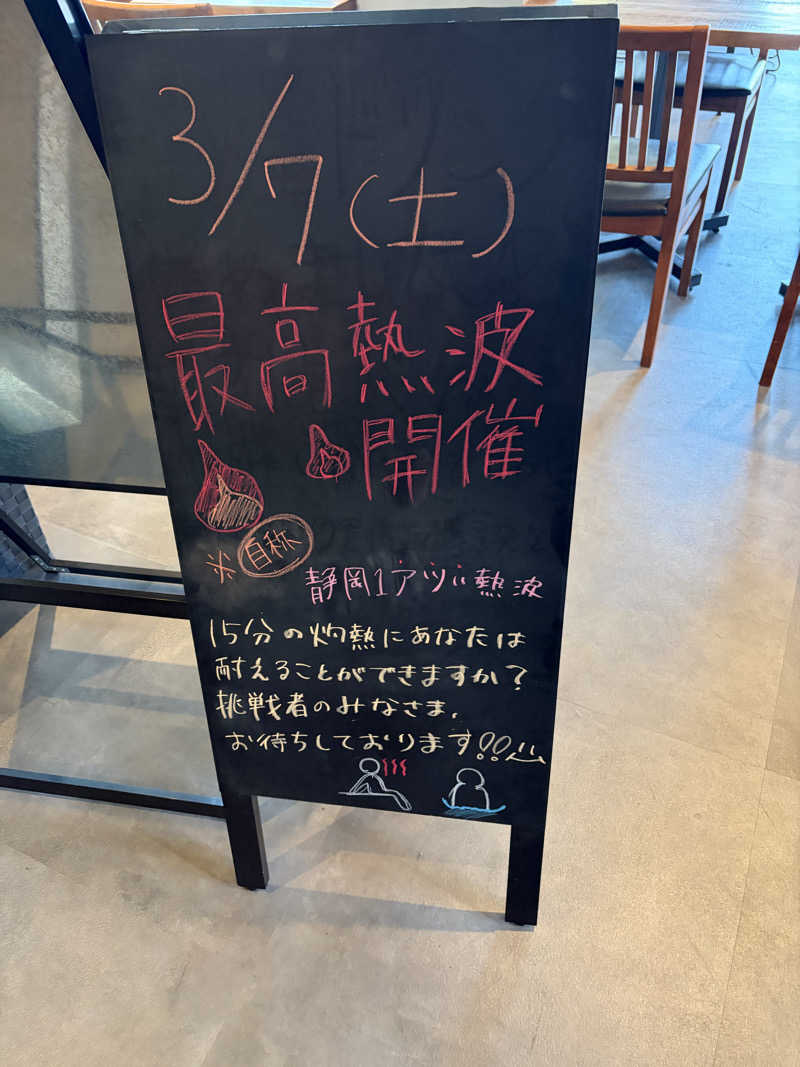 3/7(土)
最高熱波
開催
※自称
静岡1アツい熱波
15分の灼熱にあなたは
耐えることができますか?
挑戦者のみなさま、
お待ちしております!!